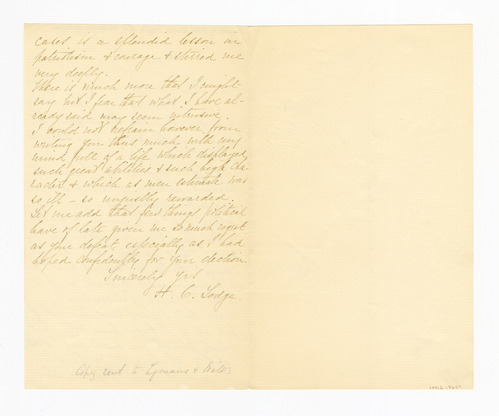 cases is a splendid lesson in
patriotism & courage & stirred me
very deeply.
There is much more that I might
say but I fear that what I have al-
ready said may seem intrusive.
I could not refrain however from
writing you thus much with my
mind full of a life which displayed
such great abilities & such high cha-
racter & which as men estimate was
so ill - so unjustly rewarded.
Let me add that few things political
have of late given me so much regret
as your defeat, especially as I had
hoped confidently for your election
Sincerely yrs
H. C. Lodge.
Copy sent to Lymans &